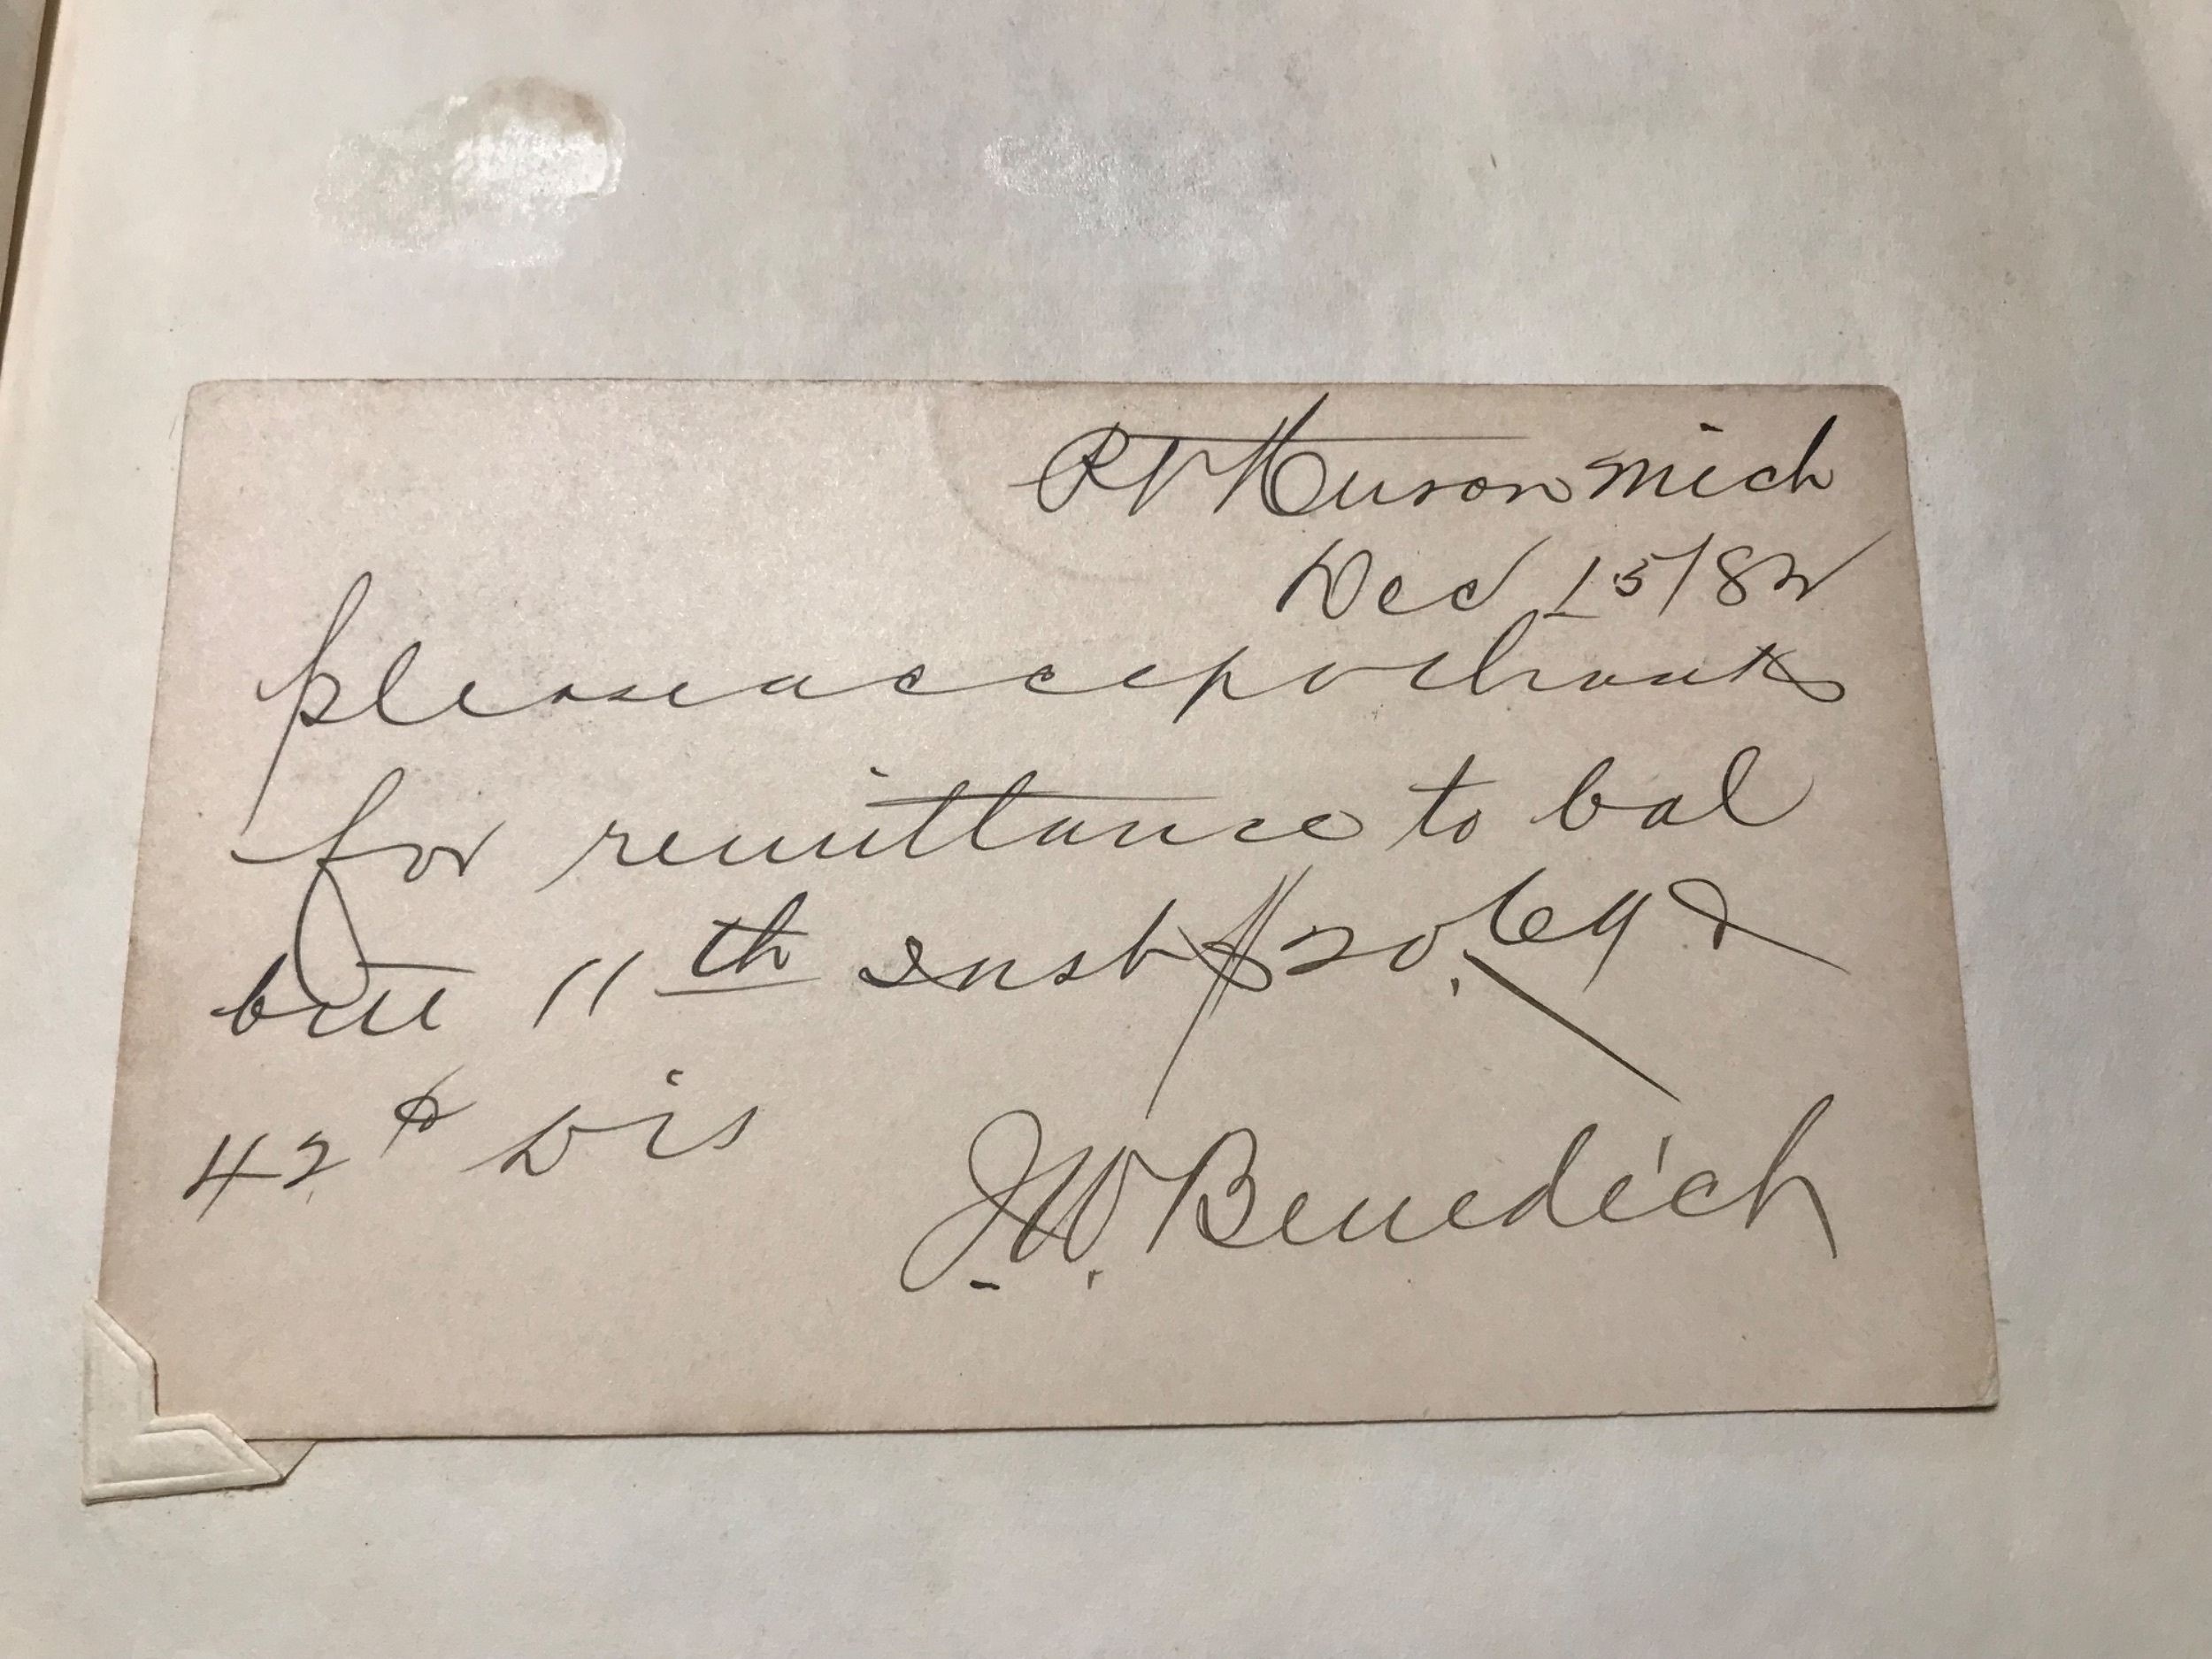 Pt Huron Mich
Dec 15/82
please accept thanks
for remittance to bal
bill 11th Inst $20.69 &
42¢ Dis
J.W. Benedict